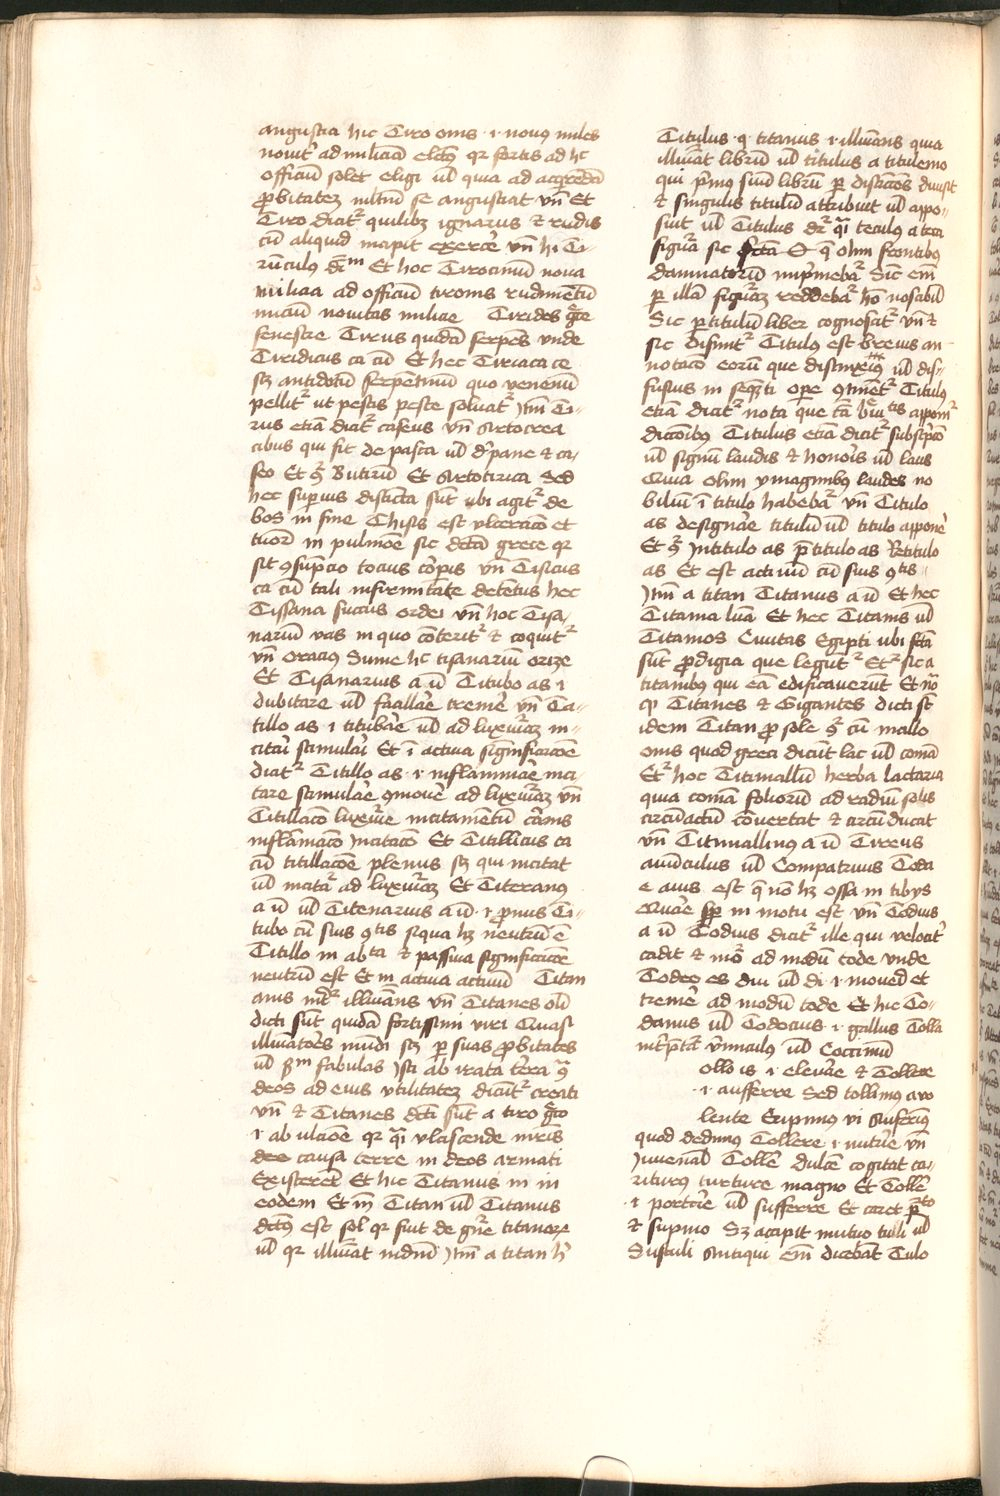 angustia hic Tiro onis .i. novus miles
noviter ad miliciā electus qr fortis ad hc
officiū solet eligi ul quia ad accipiendā
ꝓbitatez multum se angustiat vn̄ Et
Tiro dicitᵣ quilibz ignarus et rudis
cū aliquid incipit exercere vn̄ hi Ti-
rūculus dr̄m Et hoc Tirocinium noua
milicia ad officiū tironis rudimētū
iniciū nouitas milicie Tirides grece
fenestre Tirus quidā serpēs vnde
Tiridicus ca cū Et hec Tiriaca ce
sz antidotū serpētinū quo venenū
pellitᵣ ut pestis peste soluatᵣ Itm̄ Ti-
rus etiā dicitᵣ caseus vn̄ Artocrea
cibus qui fit de pasta ul d' pane et ca-
seo Et ꝯᵣ Butirū Et Artotirica Sed
hec superius distincta sūt ubi agitᵣ de
bos in fine Thisis est vlceracio et
tuor in pulmōe sic dicta grece qr
sit ꝯsūpcio tocius corpis vn̄ Tisicus
ca cū tali infirmitate detētus hec
Tissana succus ordei vn̄ hoc Tisa-
nariū vas in quo cōteritᵣ et coquitᵣ
vn̄ Oracius Sume hc tisanariū orize
Et Tisanarius a ū Titubo as i
dubitare ul fallere tremere vn̄ Ta-
tillo as i titubare ul ad luxuriaz in-
citari stimulari Et ī actiua significacōe
dicitᵣ Titillo as .i. inflammare inci
tare stimulare ꝯmouere ad luxuriaz vn̄
Titillacio luxurie incitamentū carnis
inflāmacio incitacio Et Titillicus ca
cū titillacōe plenus sz qui incitat
ul incitatᵣ ad luxuriaz Et Titeranus
a ū ul Titenarius a ū .i. pronus Ti-
tubo cū suis ꝯtis siqua hz neutrū ē
Titillo in abta et passiua significacōe
neutrū est Et in actiua actiuū Titan
anis intᵣ illuminans vn̄ Titanes olī
dicti sūt quidā fortissimi viri Quasi
illuminatores mūdi sz ꝑ suas ꝓbitates
ul ßm fabulas Isti ab irata terra ꝯᵃ
deos ad eius vtilitatez dicūtᵣ creati
vn̄ et Titanes dicti sūt a tiro greco
i ab ulcione qr quasi vlciscende matris
causa terre in deos armati
existerent Et hic Titanus ni in
eodem Et in Titan ul Titanus
dictus est sol qr fuit de genere titanorum
ul qr illuminat mdm̄ Itm̄ a titan hic
Titulus .q. titanus .i. illuminans quia
illuminat librum ul titulus a titulemo
qui primus suum librū per distinctōes diuisit
et singulis titulū attribuit ul appo-
suit ul Titulus dr̄ quasi teculus a teca
figura sic facta que olim frontibus
damnatorū imprimebatᵣ Sic em̄
ꝑ illā figuraz reddebatᵣ homo noscibil
Sic per titulū liber cognoscitᵣ vn̄ et
sic difinitᵣ Titulus est breuis an-
notacio eorum que distinctius ul dis-
fusius in sequenti opere ꝯtinetᵣ Titulus
etiā dicitᵣ nota que cā breuitatis apponitᵣ
dictionibus Titulus etiā dicitᵣ subscripcio
ul signū laudis et honoris ul laus
Quia olim ymaginibus laudes no
biliū ī titulo habebatᵣ vn̄ Titulo
as designare titulū ul titulo apponere
Et ꝯᵣ Intitulo as Pretitulo as Retitulo
as Et est actiuū cū suis ꝯtis
Itm̄ a titan Titanus a ū Et hec
Titania luna Et hec Titanis ul
Titanos Ciuitas Egipti ubi facta
sūt ꝓdigia que legūtᵣ Etᵣ sic a
titanibus qui eā edificauerūt Et nota
qꝫ Titanes et Gigantes dicti sūt
idem Titan pro sole ꝯᵣ cū mallo
onis quod greci dicūt lac ul comā
Etᵣ hoc Titimallū herba lactaria
quia comā foliorū ad radiū solis
circūactū cōuertat et circūducat
vn̄ Titimallinus a ū Tireus
auūculus ul Compatruus Toda
e auis est que nō hz ossa in tibijs
Quare semper in motu est vn̄ Todius
a ū Todius dicitᵣ ille qui velociter
cadit et ad modū tode vnde
Todeo es diu ul di i mouerj et
tremere ad modū tode Et hic To-
danus ul Todocius .i. gallus Tolla
intᵣpretatᵣ vinculus ul Coccinū
ollo is i eleuare et Tollere
.i. aufferre Sed tollimus a vo
lente Eripimus vi Auferimus
quod dedimus Tollere .i. nutrire vn̄
Iuuenal Tollere dulcē cogitat ca-
riturus turture magno Et Tollere
.i. portare ul sufferre Et caret preto
et supino Sz accipit mutuo tuli ul
Sustuli Antiqui em̄ dicebāt Tulo